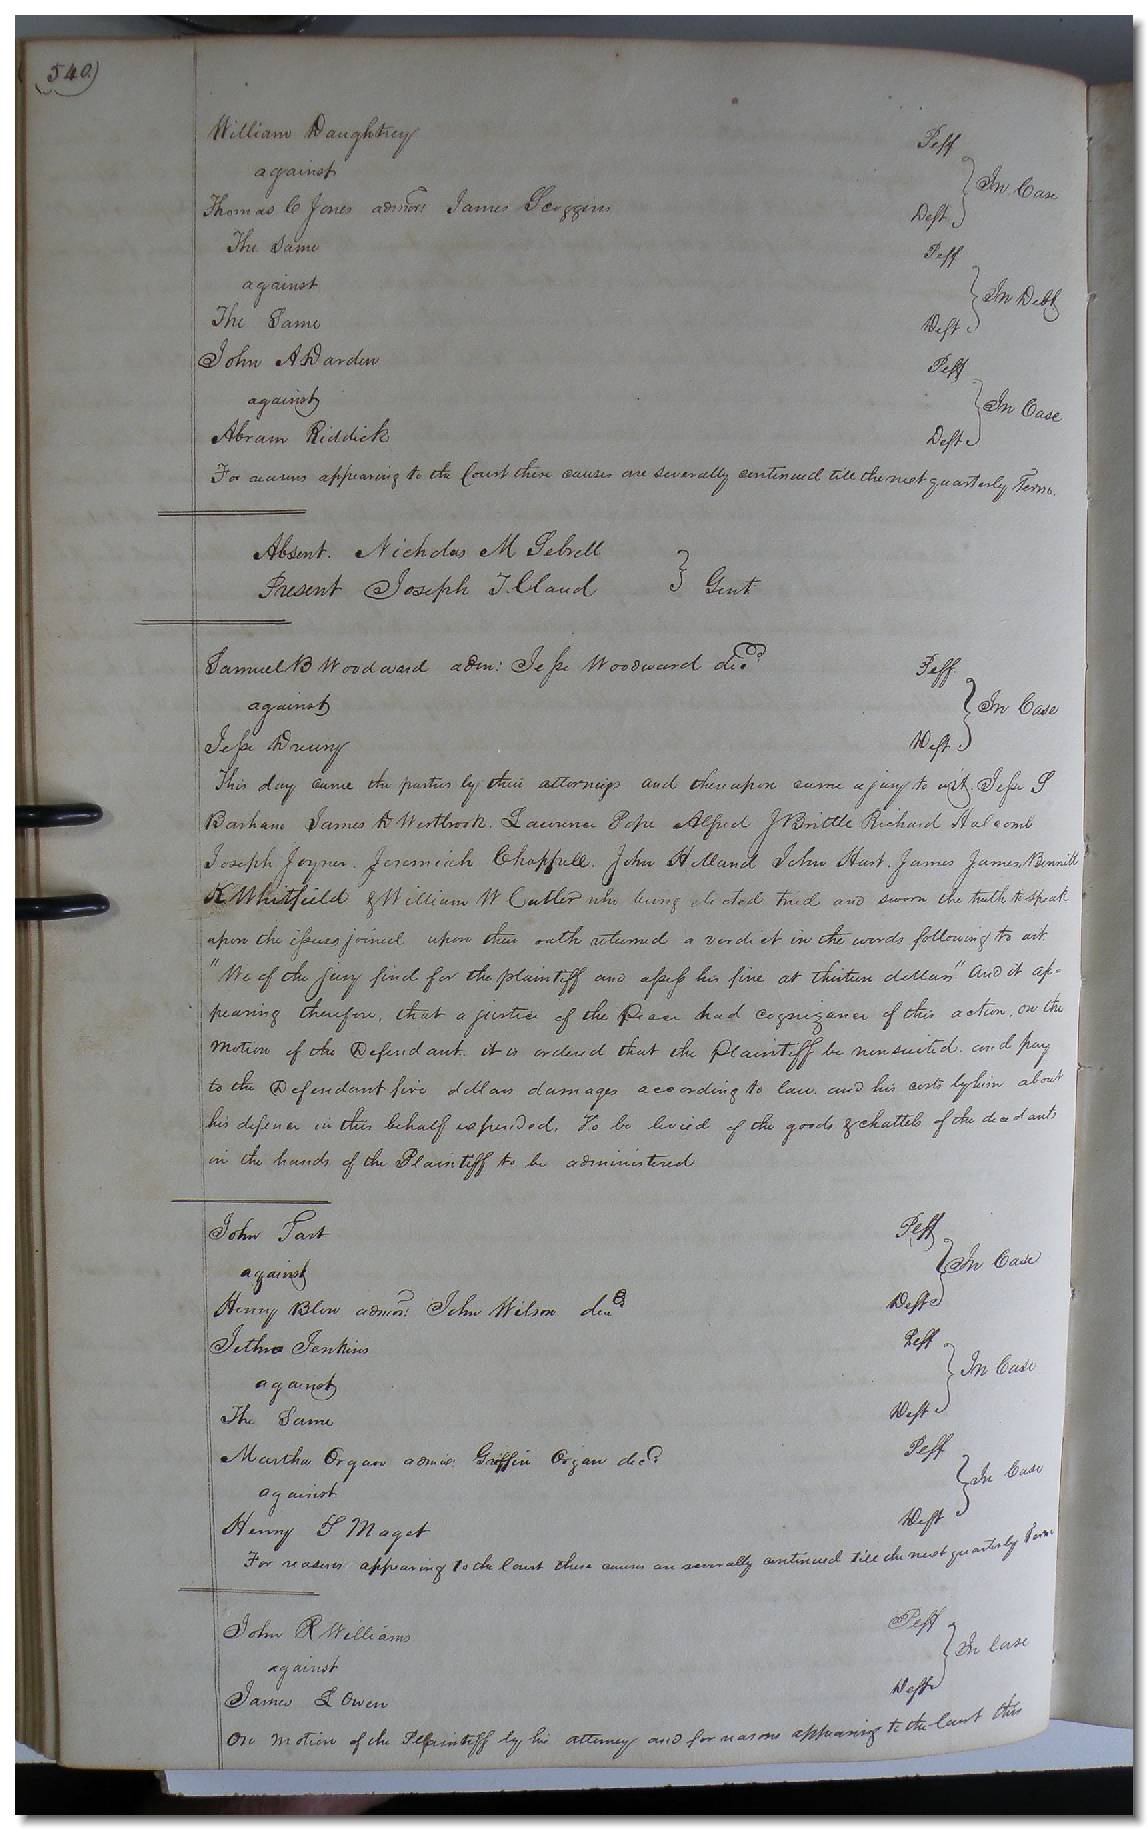 540)
William Daughtrey Plff
against } In Case
Thomas C Jones admor: James Scoggins Deft
The Same Plff
against } In Debt
The Same Deft
John A Darden Plff
against } In Case
Abram Riddick Deft
For reasons appearing to the Court these causes are severally continued till the next quarterly Term.
Absent. Nicholas M Sebrell
Present Joseph T. Claud } Gent
Samuel B Woodward adm: Jesse Woodward decd Plff
against } In Case
Jesse Drewry Deft
This day came the parties by their attorneys and thereupon came a jury to wit. Jesse S
Barham James D Westbrook. Laurence Pope Alfred J Brittle Richard Halcomb
Joseph Joyner. Jeremiah Chappell. John Holland John Hart. James James, Bennett
K Whitfield & William W Cutler who being elected tried and sworn the truth to speak
upon the issues joined upon their oath returned a verdict in the words following to wit
"We of the jury find for the plaintiff and assess his fine at thirteen dollars" and it ap-
pearing therefore, that a justice of the Peace had cognizance of this action, on the
motion of the Defendant. it is ordered that the Plaintiff be nonsuited. and pay
to the Defendant five dollars damages according to law. and his costs by him about
his defence in this behalf expended. To be levied of the goods & chattels of the decedants
in the hands of the Plaintiff to be administered
John Tart Plff
against } In Case
Henry Blow admor: John Wilson decd Deft
Jethro Jenkins Plff
against } In Case
The Same Deft
Martha Organ admix. Griffin Organ decd Plff
against } In Case
Henry S Maget Deft
For reasons appearing to the Court these causes are severally continued till the next quarterly Term
John R Williams Plff
against } In Case
James L Owen Deft
On motion of the Plaintiff by his attorney and for reasons appearing to the Court this